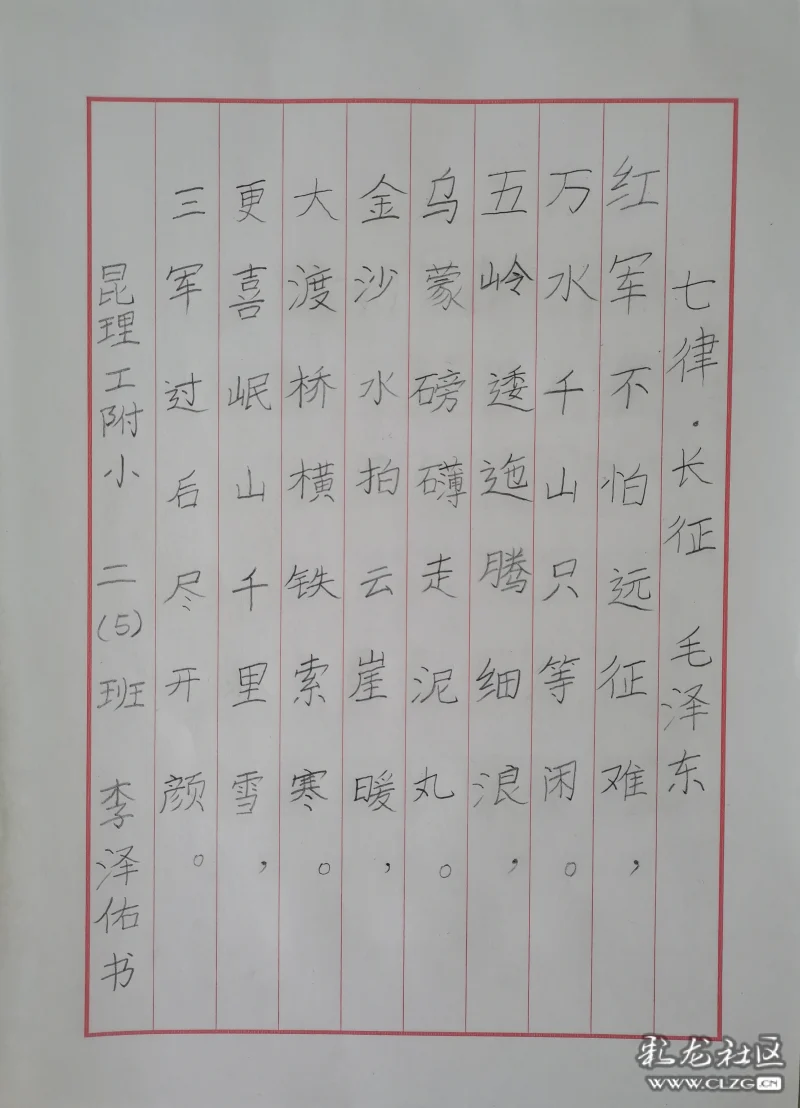 七律·长征 毛泽东
红军不怕远征难，
万水千山只等闲。
五岭逶迤腾细浪，
乌蒙磅礴走泥丸。
金沙水拍云崖暖，
大渡桥横铁索寒。
更喜岷山千里雪，
三军过后尽开颜。
昆理工附小 二(5)班 李泽佑书
彩龙社区
www.CLZG.CN